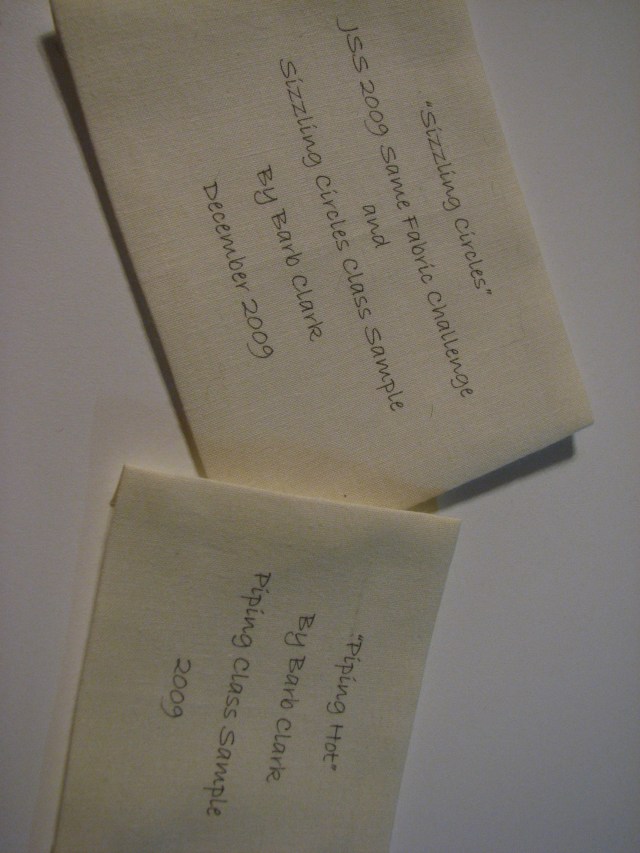 "Sizzling Circles"
JSS 2009 Same Fabric Challenge
and
Sizzling Circles Class Sample
By Barb Clark
December 2009
"Piping Hot"
By Barb Clark
Piping Class Sample
2009